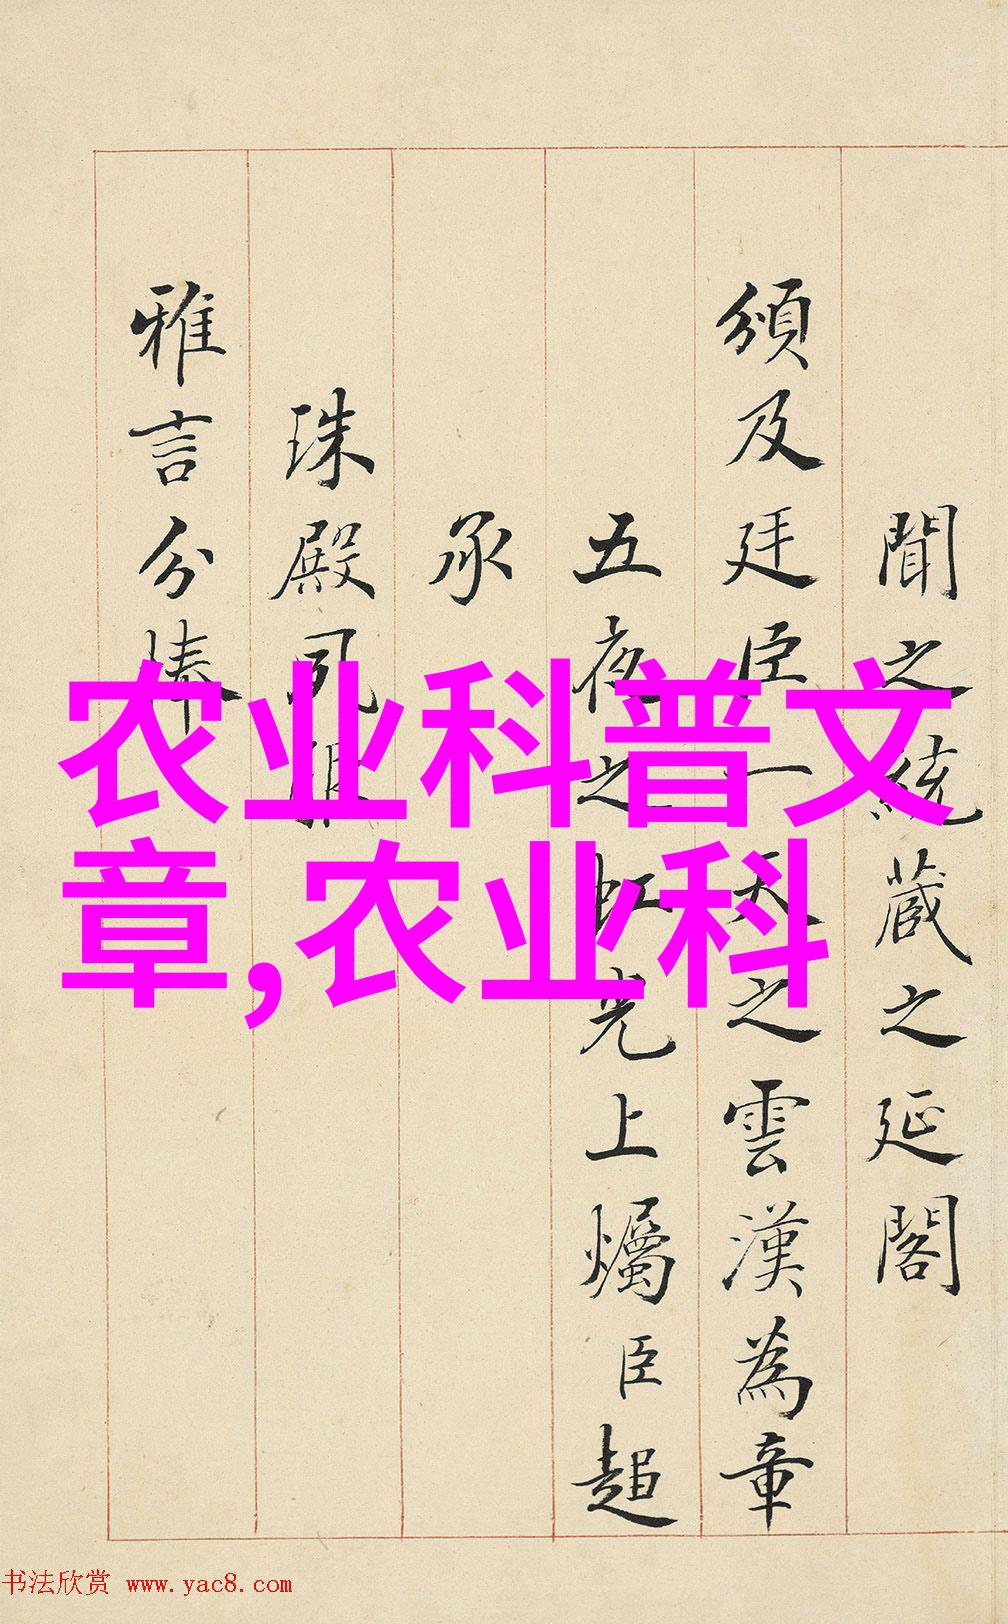 聞之統蔵之延閣
頒及廷臣一天之雲漢為章
五夜之虹光上爥臣超
承
珠殿
雅言分捧
农业科普文
章,农业科
书法欣赏 www.yac8.com